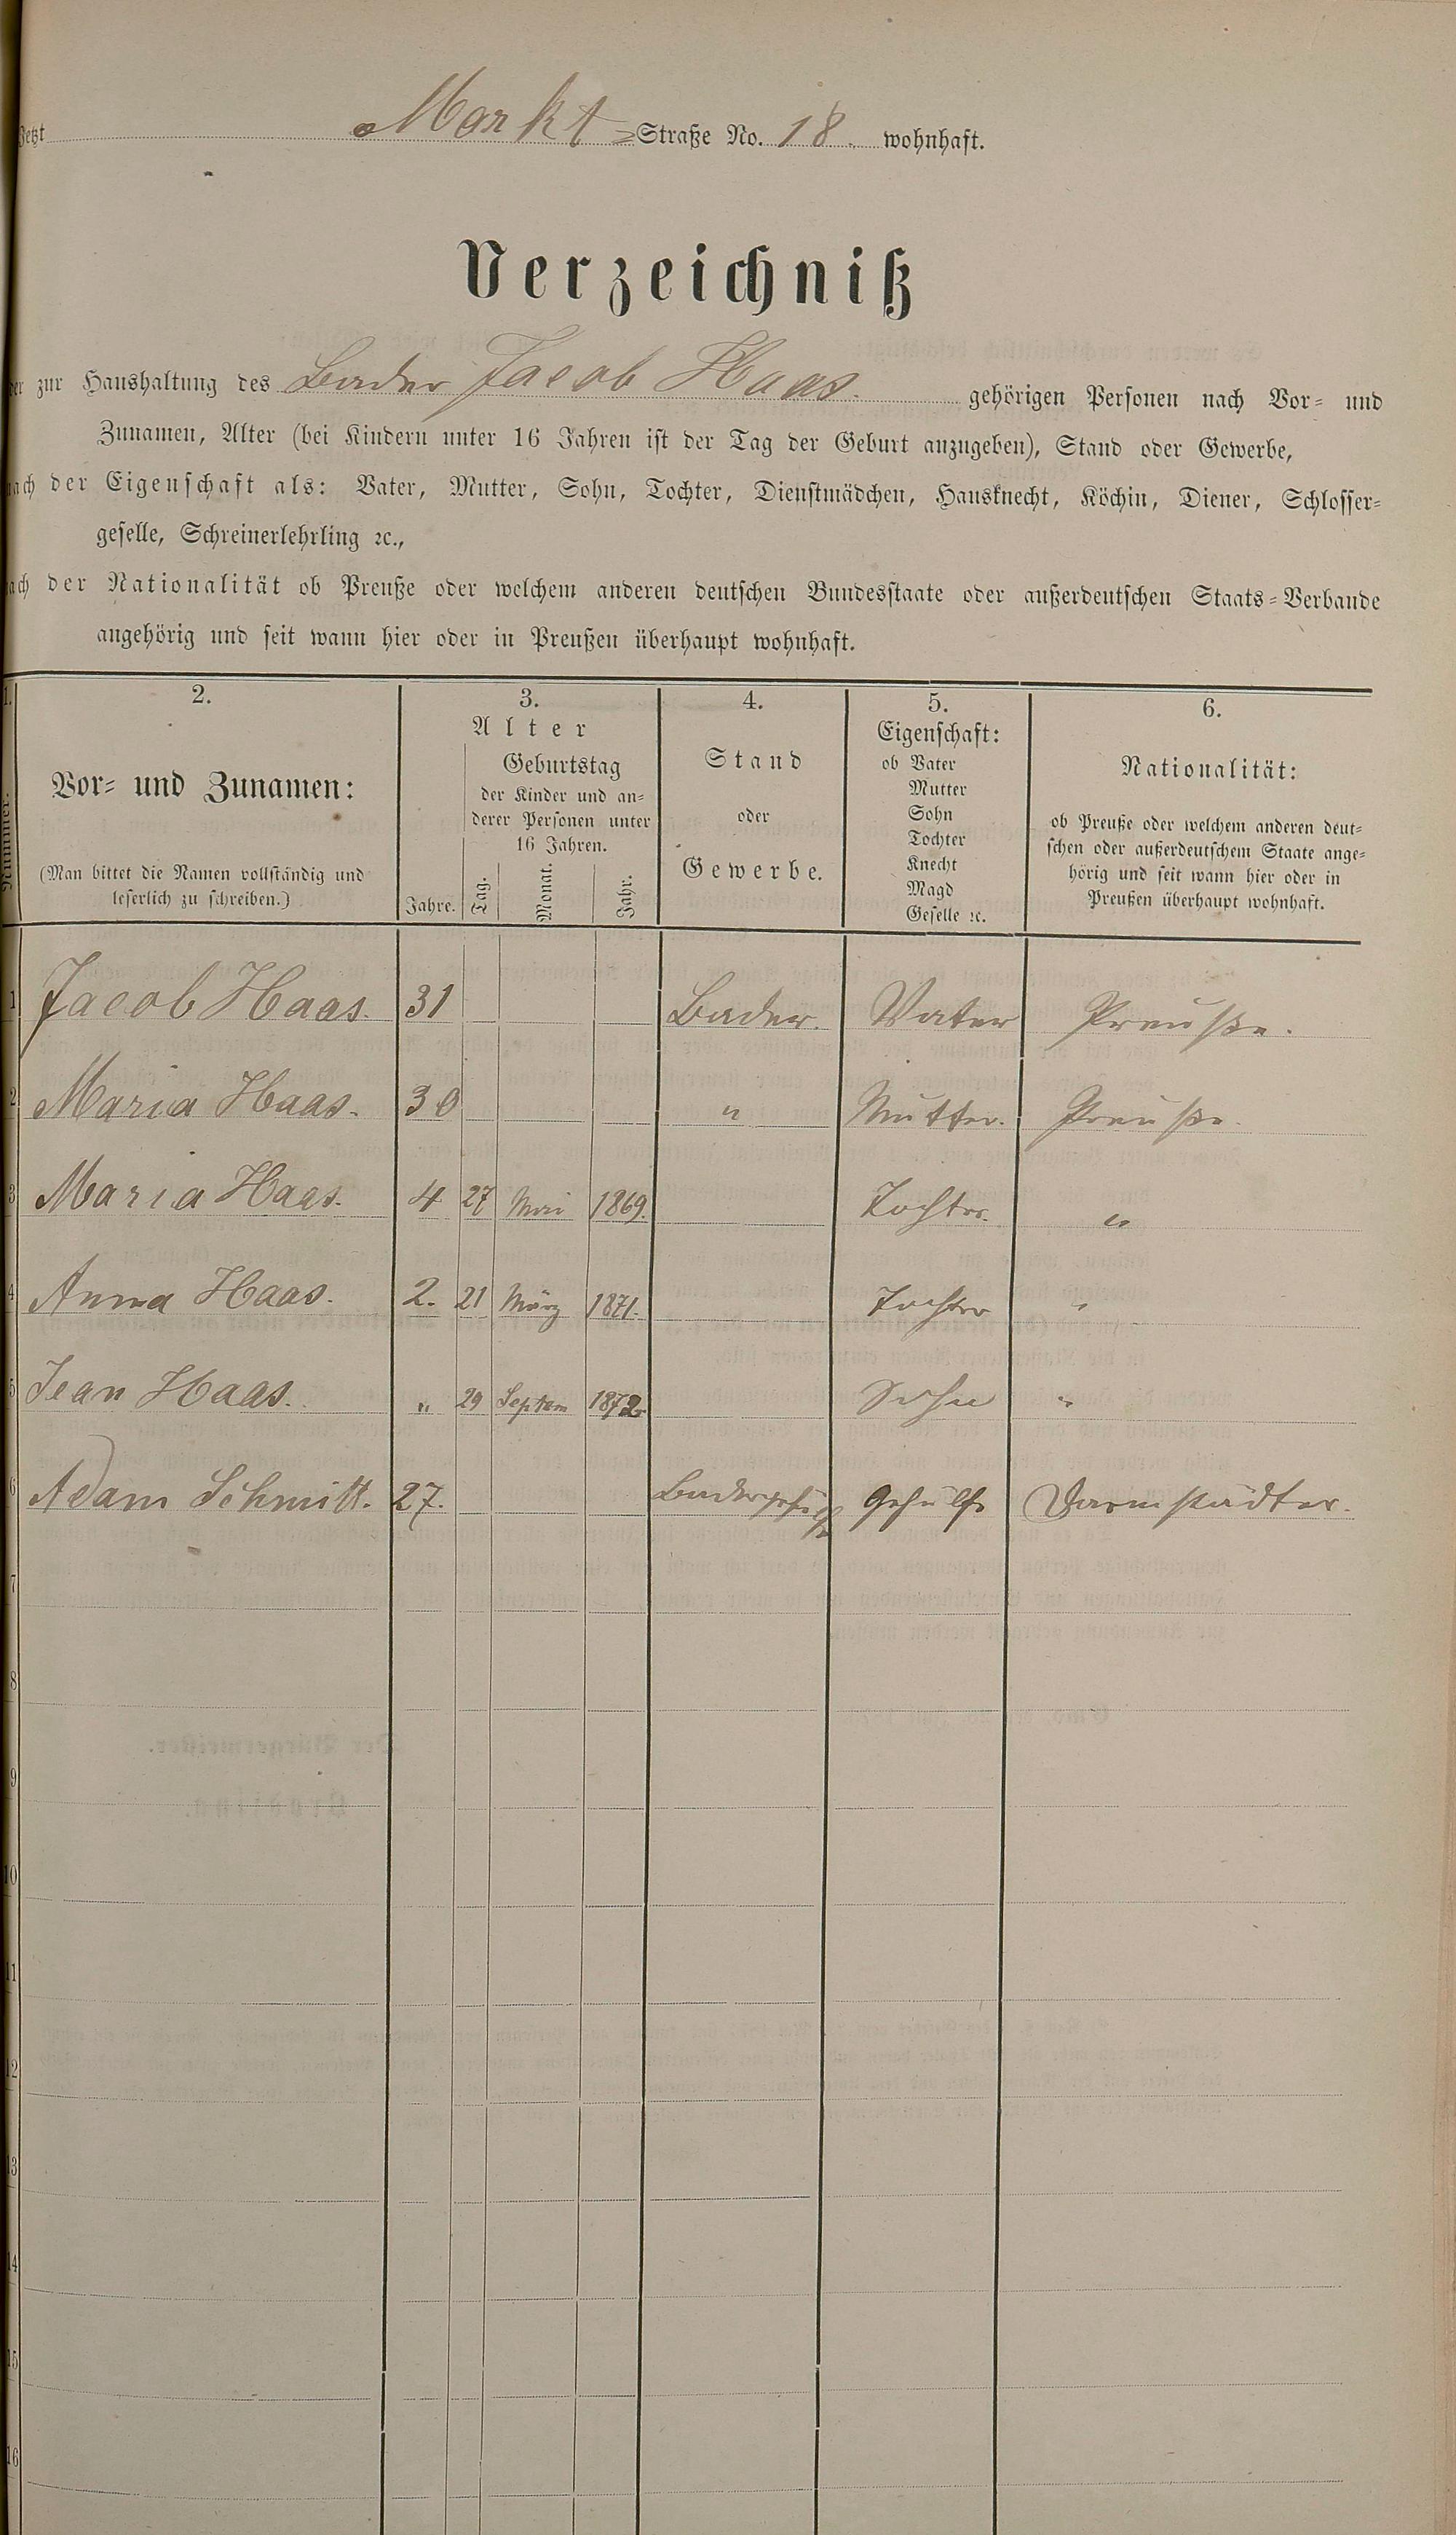 Jetzt Markt-Straße No. 18. wohnhaft.
Verzeichniß
der zur Haushaltung des Bader Jacob Haas. gehörigen Personen nach Vor- und
Zunamen, Alter (bei Kindern unter 16 Jahren ist der Tag der Geburt anzugeben), Stand oder Gewerbe,
nach der Eigenschaft als: Vater, Mutter, Sohn, Tochter, Dienstmädchen, Hausknecht, Köchin, Diener, Schlosser-
geselle, Schreinerlehrling ꝛc.,
nach der Nationalität ob Preuße oder welchem anderen deutschen Bundesstaate oder außerdeutschen Staats-Verbande
angehörig und seit wann hier oder in Preußen überhaupt wohnhaft.
1.
Nummer.
2.
Vor- und Zunamen:
(Man bittet die Namen vollständig und
leserlich zu schreiben.)
3.
Alter
Jahre.
Geburtstag
der Kinder und an-
derer Personen unter
16 Jahren.
Tag. Monat. Jahr.
4.
Stand
oder
Gewerbe.
5.
Eigenschaft:
ob Vater
Mutter
Sohn
Tochter
Knecht
Magd
Geselle ꝛc.
6.
Nationalität:
ob Preuße oder welchem anderen deut-
schen oder außerdeutschem Staate ange-
hörig und seit wann hier oder in
Preußen überhaupt wohnhaft.
1 Jacob Haas. 31 Bader. Vater Preuße.
2 Maria Haas. 30 " Mutter. Preuße.
3 Maria Haas. 4 27 Mai 1869. Tochter. "
4 Anna Haas. 2. 21 März 1871. Tochter "
5 Jean Haas. " 29 Septem 1872 Sohn "
6 Adam Schmitt. 27. Badergehülfe Gehülfe Darmstädter.
7
8
9
10
11
12
13
14
15
16